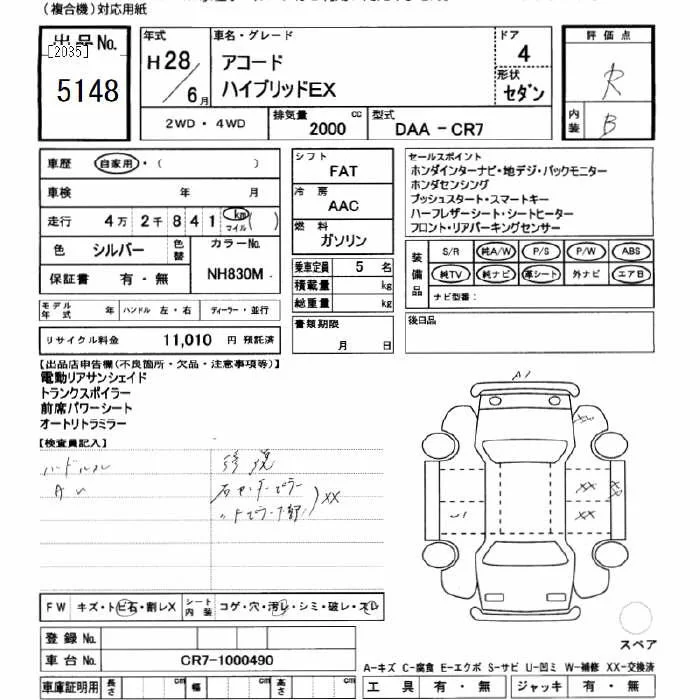 (複合機)対応用紙
出品No.
[2035]
5148
年式
H28/6月
車名・グレード
アコード
ハイブリッドEX
ドア
4
形状
セダン
評価点
R
内装
B
2WD・4WD
排気量 2000 cc
型式 DAA-CR7
車歴 自家用・( )
車検 年 月
走行 4万2千841 km マイル ( )
色 シルバー 色替
カラーNo.
NH830M
保証書 有・無
シフト
FAT
冷房
AAC
燃料
ガソリン
乗車定員 5 名
積載量 kg
総重量 kg
セールスポイント
ホンダインターナビ・地デジ・バックモニター
ホンダセンシング
プッシュスタート・スマートキー
ハーフレザーシート・シートヒーター
フロント・リアパーキングセンサー
装備品
S/R 純A/W P/S P/W ABS
純TV 純ナビ 革シート 外ナビ エアB
ナビ型番:
モデル年式 年 ハンドル 左・右 ディーラー・並行
リサイクル料金 11,010 円 預託済
書類期限
月 日
後日品
【出品店申告欄(不良箇所・欠品・注意事項等)】
電動リアサンシェイド
トランクスポイラー
前席パワーシート
オートリトラミラー
【検査員記入】
ハンドルスレ
AU
修復
右センターピラー
〃Fピラー下部
XX
A1
XX
XX
XX
U1
FW キズ・トビ石・割レX
シート内装 コゲ・穴・汚レ・シミ・破レ・スレ
登録No.
車台No. CR7-1000490
車庫証明用 長さ cm 幅 cm 高さ cm
スペア
A-キズ C-腐食 E-エクボ S-サビ U-凹ミ W-補修 XX-交換済
工具 有・無 ジャッキ 有・無